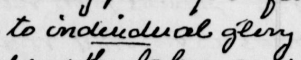 to individual glory